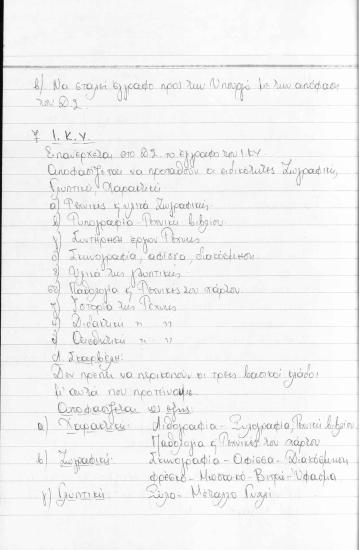 β) Να σταλεί έγγραφο προς τον Υπουργό με την απόφαση
του Δ.Σ.
7 Ι.Κ.Υ.
Επανέρχεται στο Δ.Σ. το έγγραφο του ΙΚΥ
Αποφασίζεται να προταθούν οι ειδικότητες Ζωγραφικής,
Γλυπτική, Χαρακτική
α) Τεχνικές & υλικά Ζωγραφικής
β) Τυπογραφία - Τεχνική βιβλίου
γ) Συντήρηση έργων Τέχνης
δ) Σκηνογραφία, αφίσσα, διακόσμηση
ε) Υλικά της γλυπτικής
στ) Παθολογία & Τεχνικές του χάρτου
ζ) Ιστορία της Τέχνης
η) Διδακτική " "
θ) Αισθητική " "
Λ. Σκαρβέλη:
Δεν πρέπει να περικοπούν οι τρεις βασικοί κλάδοι
μ' αυτά που προτείνουμε
Αποφασίζεται ως εξής:
α) Χαρακτική: Λιθογραφία - Ξυλογραφία, Τεχνική βιβλίου
Παθολογία & Τεχνικές του χάρτου
β) Ζωγραφική: Σκηνογραφία - Αφίσσα - Διακόσμηση
φρέσκο - Μωσαϊκό - Βιτρώ - Ύφασμα
γ) Γλυπτική: Ξύλο - Μέταλλο Γυαλί